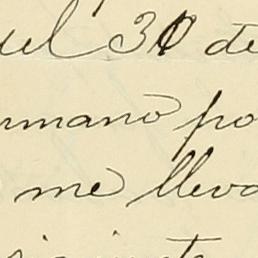 uel 30 de
rmano po
me lleva